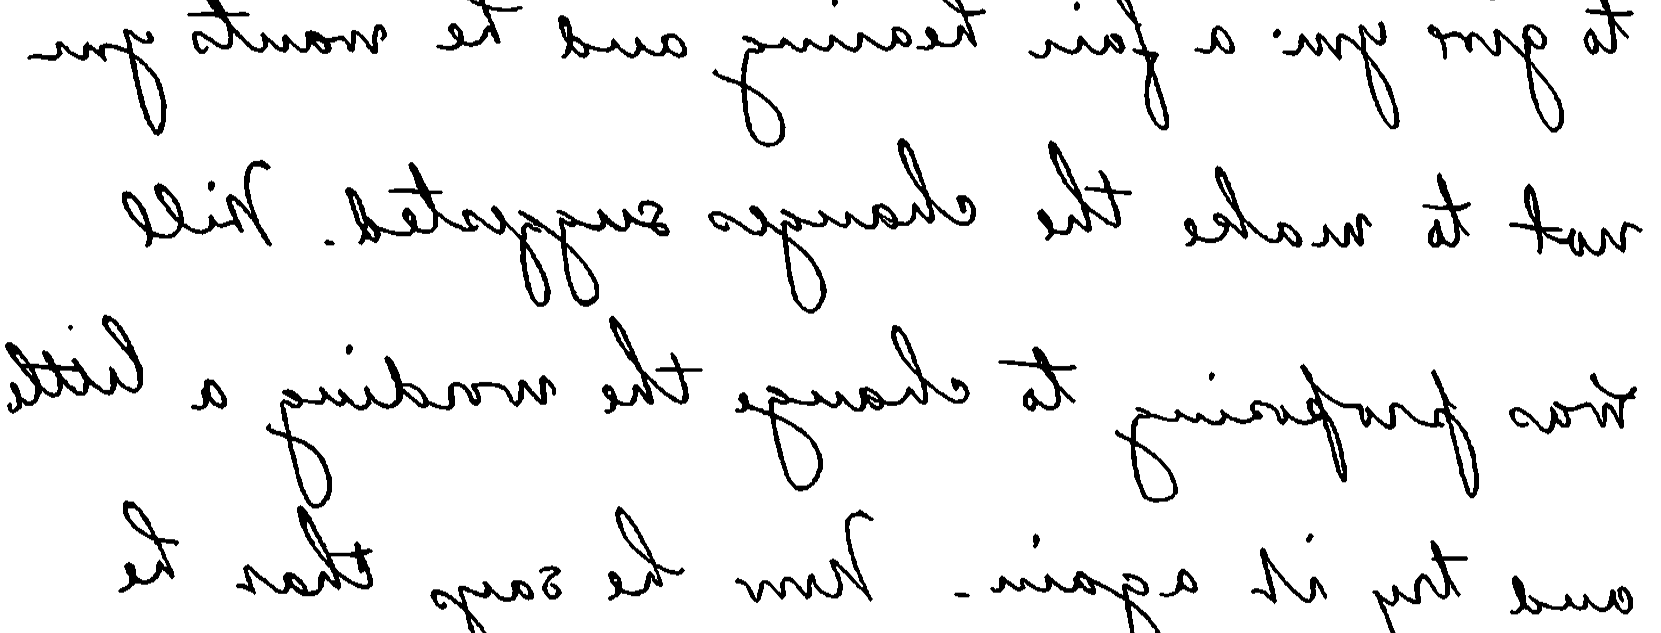 to give you a fair hearing and he wants you
not to make the changes suggested. Nill
was proposing to change the wording a little
and try it again - Now he says that he